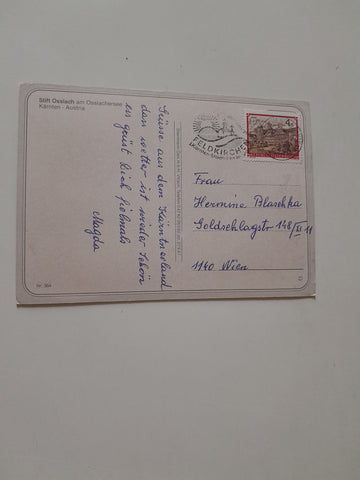 Stift Ossiach am Ossiachersee
Kärnten - Austria
Grüsse aus dem Kärntnerland
das wetter ist wieder schön
es grüst Dich fielmals
Magda
FELDKIRCHEN
4
Frau
Hermine Blaschka
Goldschlagstr 148/XI 11
1140 Wien